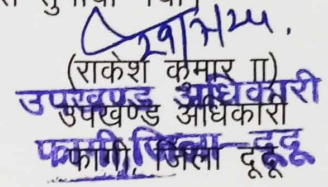 (राकेश कुमार II)
उपखण्ड अधिकारी
उपखण्ड अधिकारी
फागी, जिला दूदू
फागी, जिला-दूदू